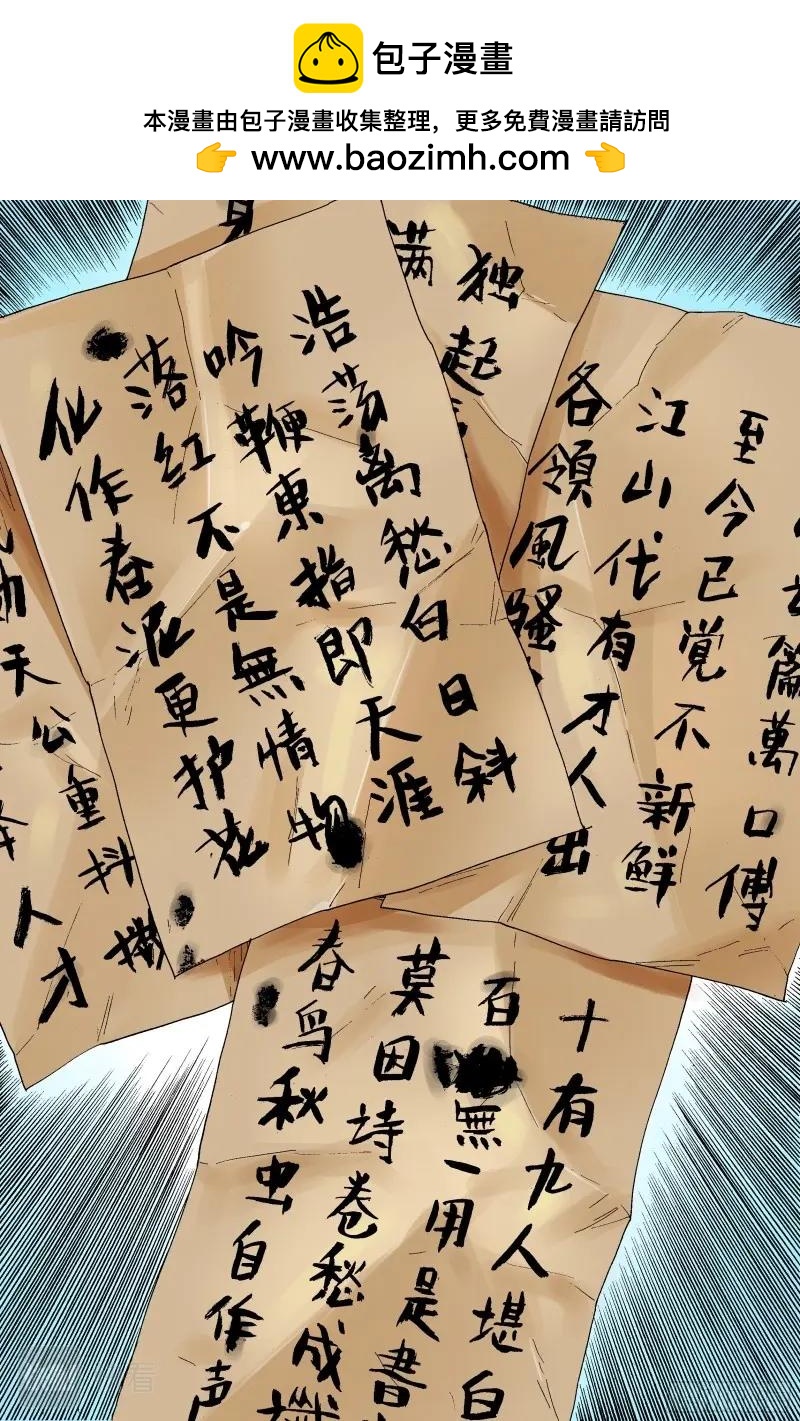 包子漫畫
本漫畫由包子漫畫收集整理，更多免費漫畫請訪問
www.baozimh.com
身
独起
满
浩荡离愁白日斜
吟鞭東指即天涯
落红不是無情物
化作春泥更护花
篇萬口傳
至今已覚不新鮮
江山代有才人出
各領風骚
天公重抖擞
人才
十有九人堪白
百無一用是書
莫因诗卷愁成
春鸟秋虫自作声